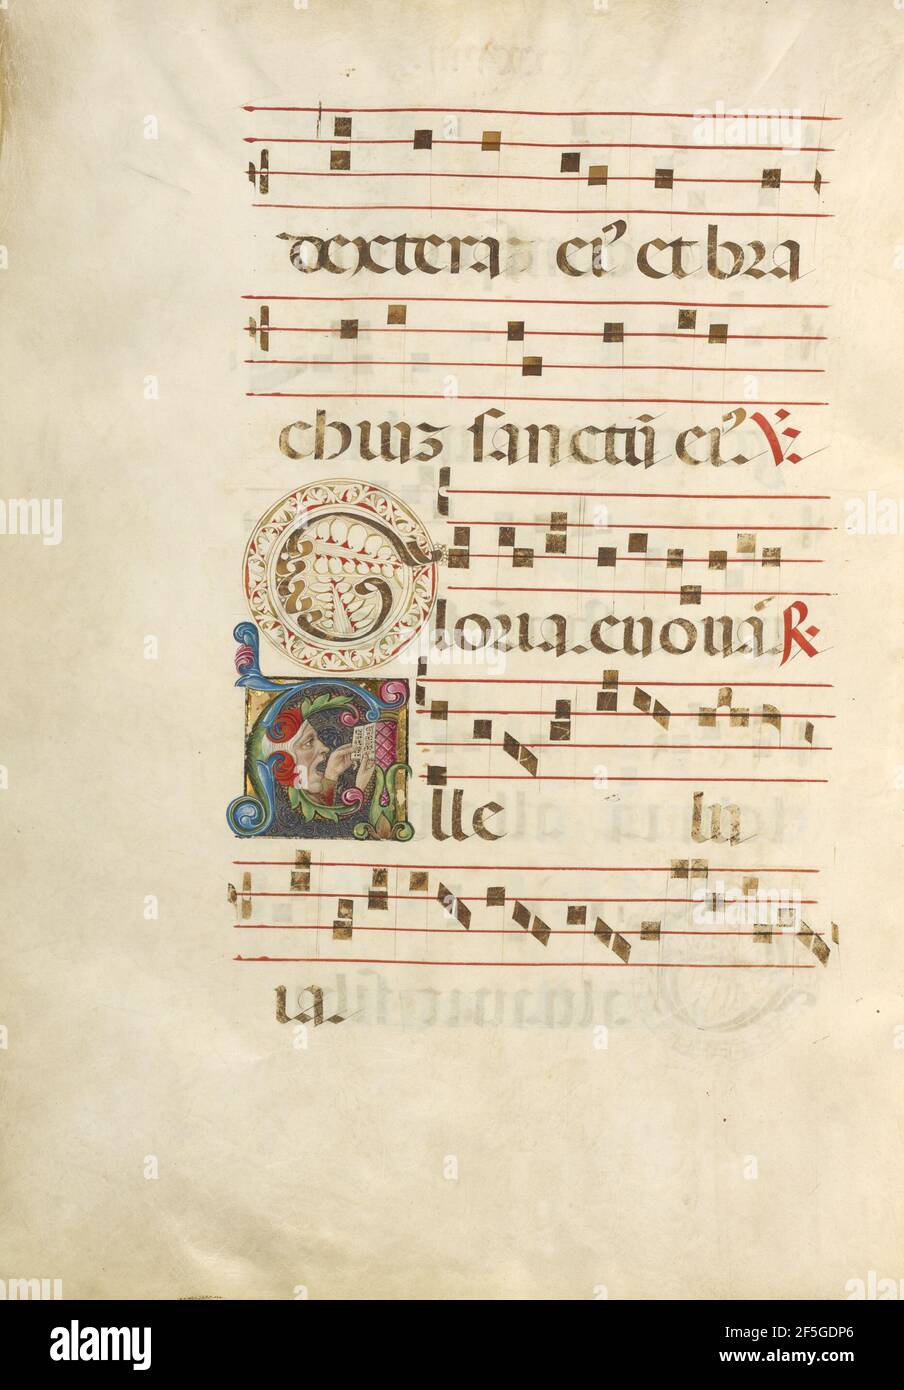 dextera eiꝰ et bra
chuiȝ sanctū eiꝰ. ℣.
Gloria. euouā ℟.
Alle lu
ia.
alamy
Image ID: 2F5GDP6
www.alamy.com